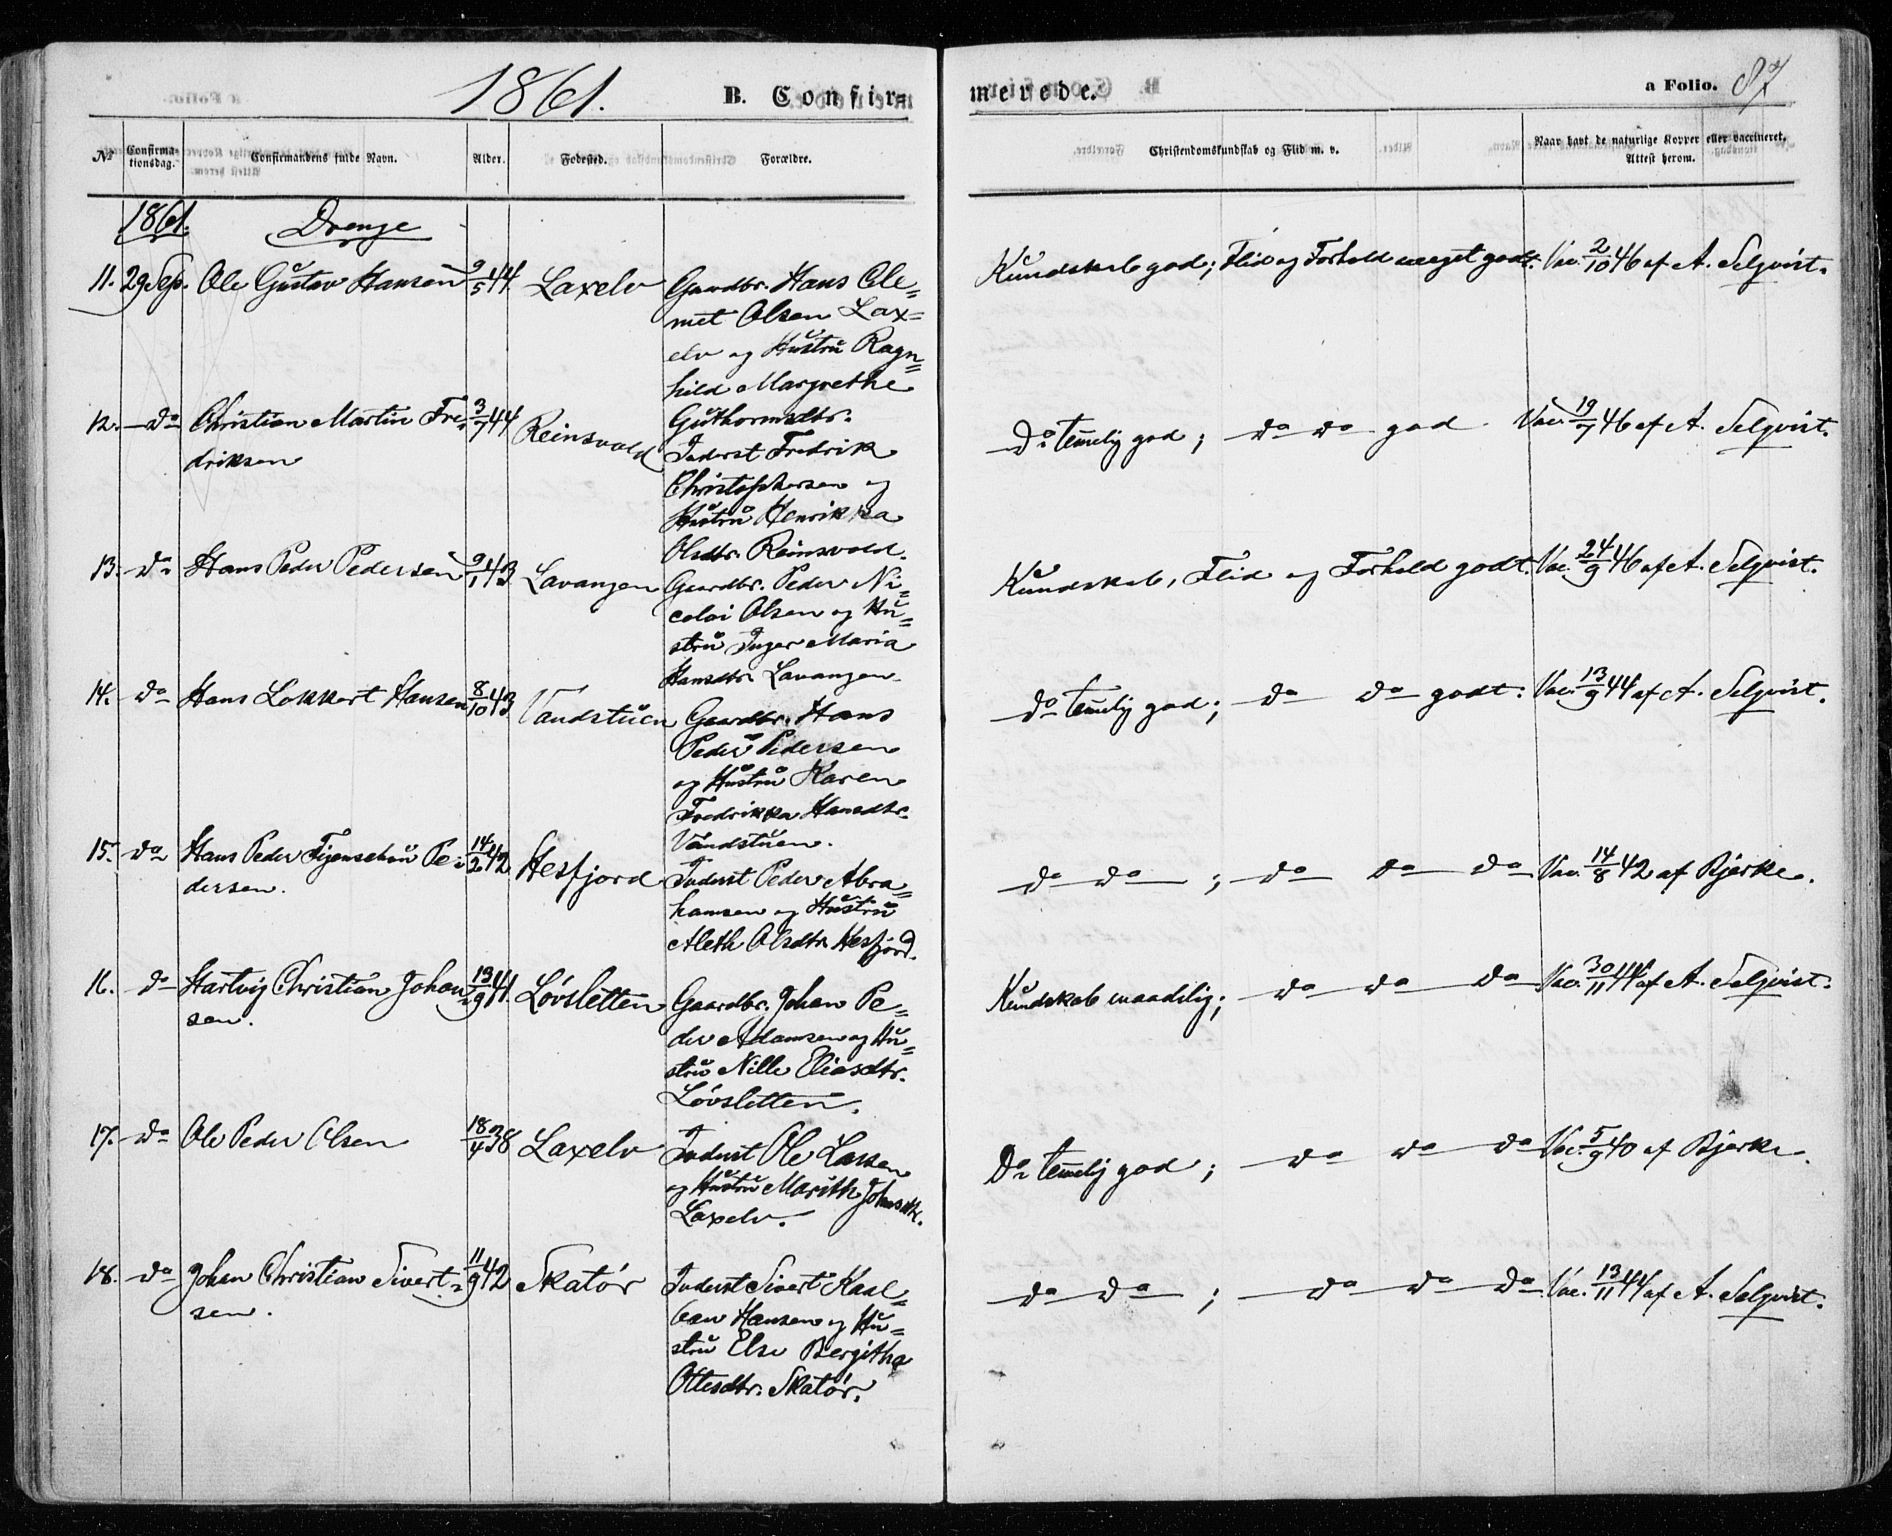 1861.
B. Confir-
merede.
a Folio. 87
No
Confirma-
tionsdag.
Confirmandens fulde Navn.
Alder.
Fødested.
Forældre.
Christendomskundskab og Flid m. v.
Naar havt de naturlige Kopper eller vaccineret.
Attest herom.
1861. Drenge
11. 29 Sep. Ole Gustav Hansen 9/5 44. Laxelv
Gaardbr. Hans Cle=
met Olsen Lax=
elv og Hustru Ragn=
hild Margrethe
Guthormsdtr.
Kundskab god; Flid og Forhold meget godt. Vac. 2/10 46 af A. Selqvist.
12. do Christian Martin Fre= 3/7 44 Reinsvold
driksen
Inderst Fredrik
Christophersen og
Hustru Henrikka
Olsdtr. Reinsvold.
Do temelig god; do do god. Vac. 19/7 46 af A. Selqvist.
13. do Hans Peder Pedersen 9/1 43 Lavangen
Gaardbr. Peder Ni=
colai Olsen og Hu=
stru Inger Maria
Hansdtr. Lavangen.
Kundskab, Flid og Forhold godt. Vac. 24/9 46 af A. Selqvist.
14. do Hans Lokkert Hansen 8/10 43 Vandstuen
Gaardbr. Hans
Peder Pedersen
og Hustru Karen
Fredrikka Hansdtr.
Vandstuen.
do temelig god; do do godt. Vac. 13/9 44 af A. Selqvist.
15. do Hans Peder Figenschou Pe= 14/2 42 Hesfjord
dersen.
Inderst Peder Abra=
hamsen og Hustru
Aleth Olsdtr. Hesfjord.
do do; do do do Vac. 14/8 42 af Bjerke.
16. do Hartvig Christian Johan= 13/9 41. Løvsletten
sen.
Gaardbr. Johan Pe=
der Adamsen og Hu=
stru Nille Eliasdtr.
Løvsletten.
Kundskab maadelig; do do do Vac. 30/11 44 af A. Selqvist.
17. do Ole Peder Olsen 18/4 38 Laxelv
Inderst Ole Lassen
og Hustru Marith Johnsdtr.
Laxelv.
Do temelig god; do do do Vac. 5/9 40 af Bjerke.
18. do Johan Christian Sivert= 11/9 42 Skatør
sen.
Inderst Sivert Kasl=
bau Hansen og Hu=
stru Else Bergitha
Ottesdtr. Skatør.
do do; do do do Vac. 13/11 44 af A. Selqvist.